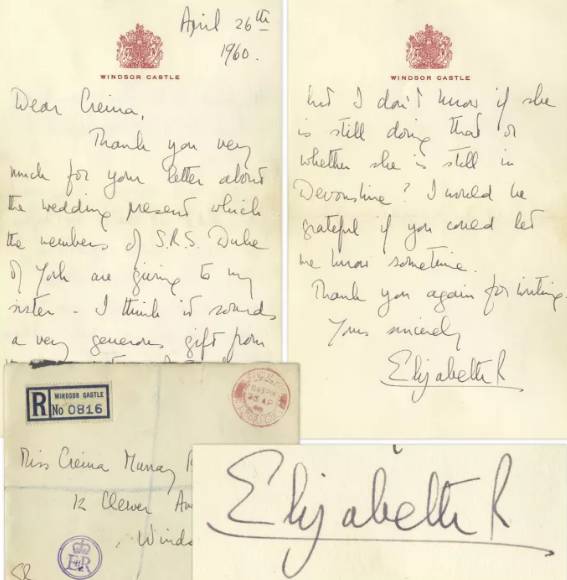 April 26th
1960.
WINDSOR CASTLE
Dear Creina,
Thank you very
much for your letter about
the wedding present which
the members of S.R.S. Duke
of York are giving to my
sister - I think it sounds
a very generous gift from
WINDSOR CASTLE
but I don't know if she
is still doing that or
whether she is still in
Devonshire? I would be
grateful if you could let
me know sometime.
Thank you again for writing.
Yours sincerely
Elizabeth R
R WINDSOR CASTLE
No 0816
Miss Creina Murray
12 Clewer
Winds
EIIR
Elizabeth R